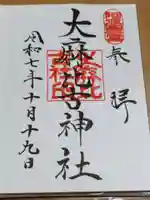 奉拝
大麻比古神社
令和七年十月十九日